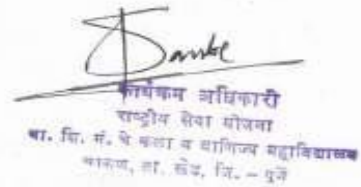 कार्यक्रम अधिकारी
राष्ट्रीय सेवा योजना
शि. मं. चे कला व वाणिज्य महाविद्यालय
ता. खेड, जि. - पुणे